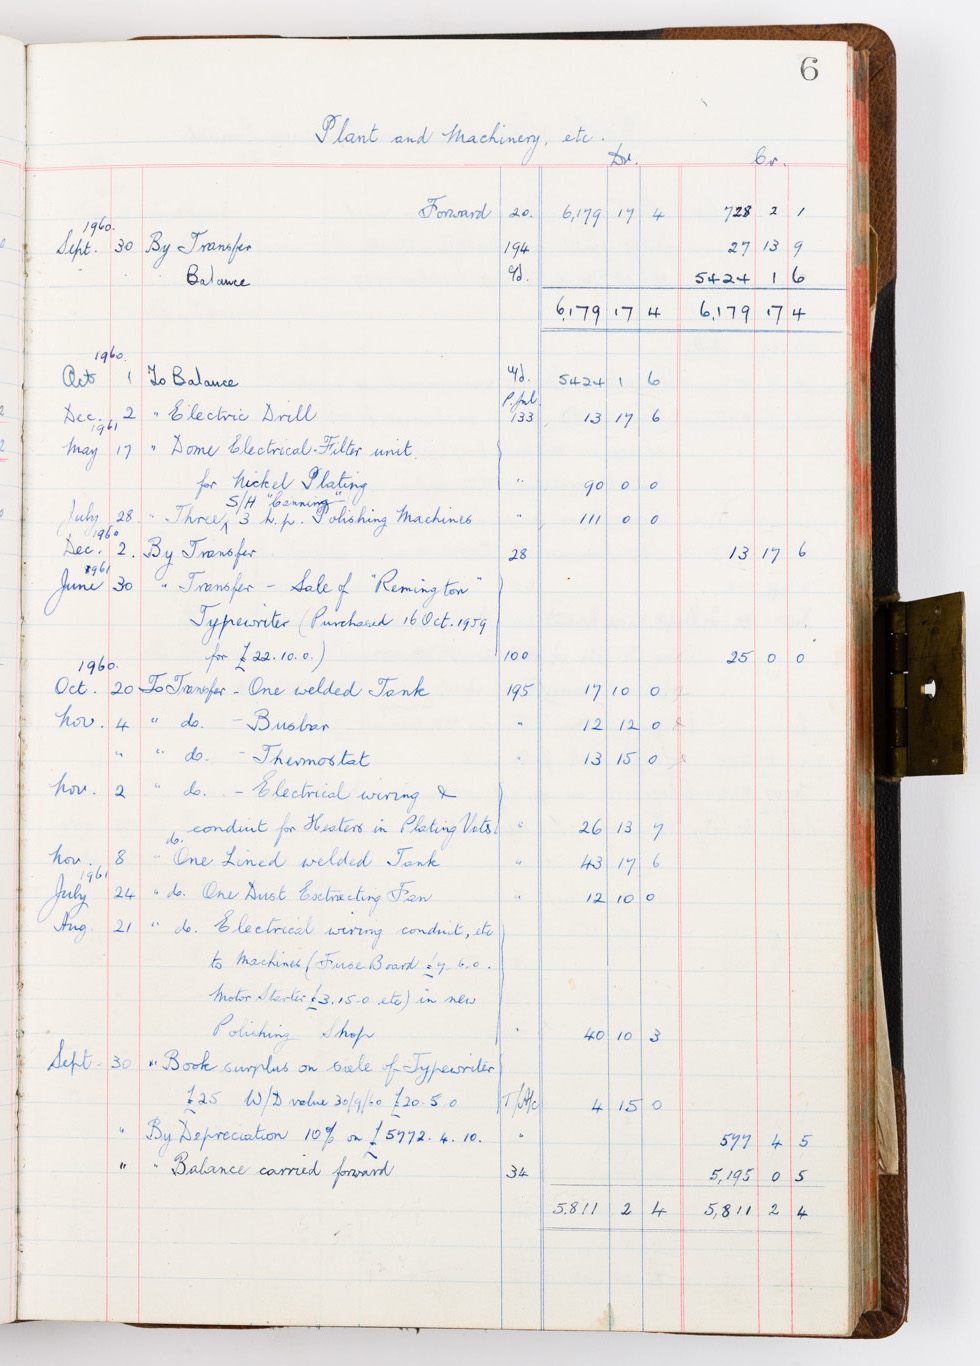 6
Plant and Machinery, etc.
Dr. Cr.
Forward 20. 6,179 17 4 728 2 1
1960.
Sept. 30 By Transfer 194 27 13 9
Balance c/d. 5424 1 6
6,179 17 4 6,179 17 4
1960.
Oct 1 To Balance b/d. 5424 1 6
P. Jnl.
Dec. 2 " Electric Drill 133 13 17 6
1961
May 17 " Dome Electrical Filter unit
for Nickel Plating " 90 0 0
S/H "Canning"
July 28 " Three 3 h.p. Polishing Machines " 111 0 0
1960
Dec. 2. By Transfer 28 13 17 6
1961
June 30 " Transfer - Sale of "Remington"
Typewriter (Purchased 16 Oct. 1959
for £22.10.0.) 100 25 0 0
1960.
Oct. 20 To Transfer - One welded Tank 195 17 10 0
Nov. 4 " do. - Busbar " 12 12 0
" " do. - Thermostat " 13 15 0
Nov. 2 " do. - Electrical wiring &
conduit for Heaters in Plating Vats " 26 13 7
do.
Nov. 8 - One Lined welded Tank " 43 17 6
1961
July 24 " do. One Dust Extracting Fan " 12 10 0
Aug. 21 " do. Electrical wiring conduit, etc
to Machines (Fuse Board £7.6.0.
Motor Starter £3.15.0 etc) in new
Polishing Shop " 40 10 3
Sept. 30 " Book surplus on sale of Typewriter
£25 W/D value 30/9/60 £20.5.0 4 15 0
" By Depreciation 10% on £5772.4.10. " 577 4 5
" " Balance carried forward 34 5,195 0 5
5,811 2 4 5,811 2 4